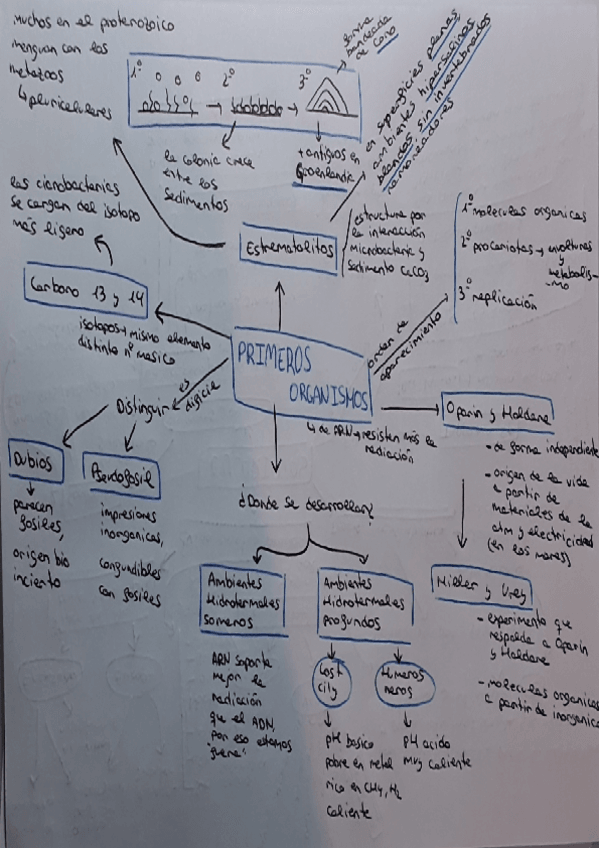 Muchos en el proterozoico
menguan con los
metazoos
↳ pluricelulares
1º
2º
3º
forma
bandeada
de cono
la colonia crece
entre los
sedimentos
+ antiguos en
Groenlandia
en superficies planas,
ambientes hipersalinos
blandos sin invertebrados
ramoneadores
Estromatolitos
estructura por
la interacción
microbacteria y
sedimento CaCO3
las cianobacterias
se cargan del isotopo
más ligero
Carbono 13 y 14
isotopos → mismo elemento
distinto nº masico
PRIMEROS
ORGANISMOS
↳ de ARN → resisten más la
radiación
orden de
aparecimiento
1º moleculas organicas
2º procariotas → envolturas
y
metabolis-
mo
3º replicación
es
dificil
Distinguir
Dubios
parecen
fosiles,
origen bio
incierto
Pseudofosil
impresiones
inorganicas,
confundibles
con fosiles
Oparin y Haldane
- de forma independiente
- origen de la vida
a partir de
materiales de la
atm y electricidad
(en los mares)
Miller y Urey
- experimento que
respalda a Oparin
y Haldane
- moleculas organicas
a partir de inorganica
¿Donde se desarrollan?
Ambientes
Hidrotermales
someros
ARN soporta
mejor la
radiación
que el ADN,
por eso estamos
"fuera"
Ambientes
Hidrotermales
profundos
Lost
city
pH basico
pobre en metal
rico en CH4, H2
caliente
Humeros
negros
pH acido
muy caliente